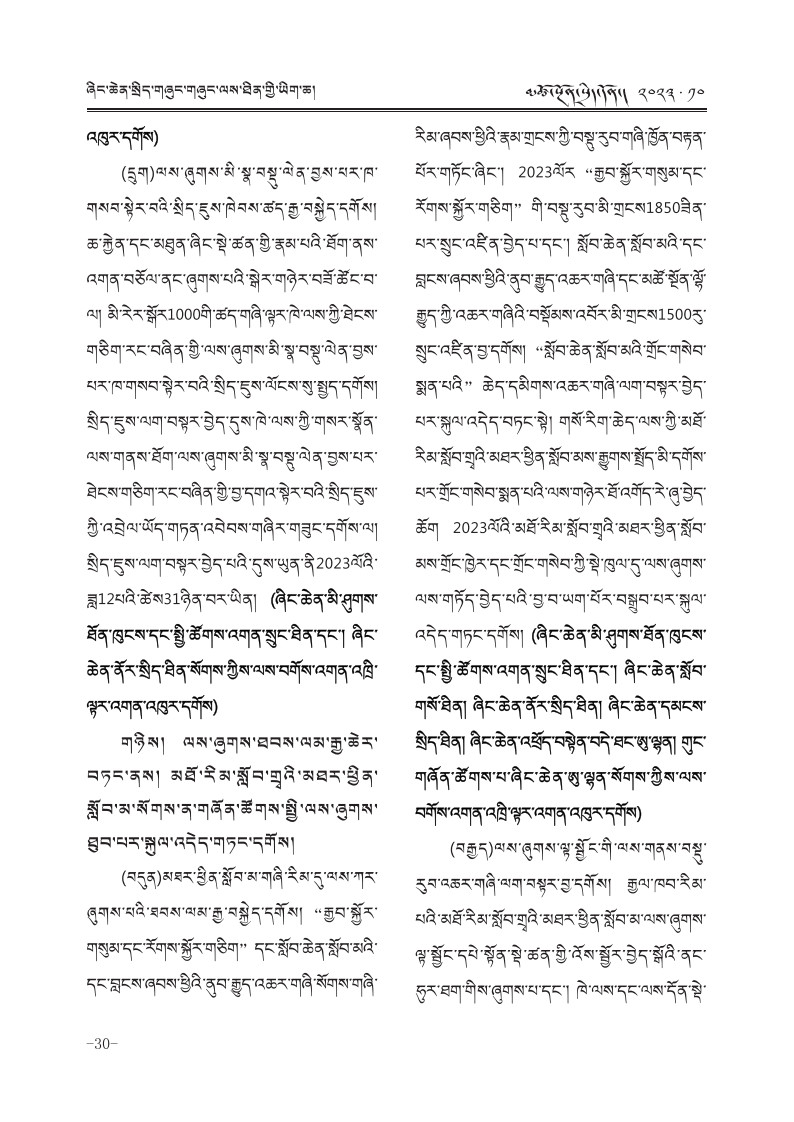 ཞིང་ཆེན་སྲིད་གཞུང་གཞུང་ལས་ཐིན་གྱི་ཡིག་ཆ།
༢༠༢༣ · ༡༠
འཁུར་དགོས)
(དྲུག)ལས་ཞུགས་མི་སྣ་བསྡུ་ལེན་བྱས་པར་ཁ་
གསབ་སྟེར་བའི་སྲིད་ཇུས་ཁེབས་ཚད་རྒྱ་བསྐྱེད་དགོས།
ཆ་རྐྱེན་དང་མཐུན་ཞིང་སྡེ་ཚན་གྱི་རྣམ་པའི་ཐོག་ནས་
འགན་བཅོལ་ནང་ཞུགས་པའི་སྒེར་གཉེར་བཟོ་ཚོང་བ་
ལ། མི་རེར་སྒོར1000གི་ཚད་གཞི་ལྟར་ཁེ་ལས་ཀྱི་ཐེངས་
གཅིག་རང་བཞིན་གྱི་ལས་ཞུགས་མི་སྣ་བསྡུ་ལེན་བྱས་
པར་ཁ་གསབ་སྟེར་བའི་སྲིད་ཇུས་ལོངས་སུ་སྤྱད་དགོས།
སྲིད་ཇུས་ལག་བསྟར་བྱེད་དུས་ཁེ་ལས་ཀྱི་གསར་སྣོན་
ལས་གནས་ཐོག་ལས་ཞུགས་མི་སྣ་བསྡུ་ལེན་བྱས་པར་
ཐེངས་གཅིག་རང་བཞིན་གྱི་བྱ་དགའ་སྟེར་བའི་སྲིད་ཇུས་
ཀྱི་འབྲེལ་ཡོད་གཏན་འབེབས་གཞིར་གཟུང་དགོས་ལ།
སྲིད་ཇུས་ལག་བསྟར་བྱེད་པའི་དུས་ཡུན་ནི2023ལོའི་
ཟླ12པའི་ཚེས31ཉིན་བར་ཡིན། (ཞིང་ཆེན་མི་ཤུགས་
ཐོན་ཁུངས་དང་སྤྱི་ཚོགས་འགན་སྲུང་ཐིན་དང་། ཞིང་
ཆེན་ནོར་སྲིད་ཐིན་སོགས་ཀྱིས་ལས་བགོས་འགན་འཁྲི་
ལྟར་འགན་འཁུར་དགོས)
གཉིས། ལས་ཞུགས་ཐབས་ལམ་རྒྱ་ཆེར་
བཏང་ནས། མཐོ་རིམ་སློབ་གྲྭའི་མཐར་ཕྱིན་
སློབ་མ་སོགས་ན་གཞོན་ཚོགས་སྤྱི་ལས་ཞུགས་
ཐུབ་པར་སྐུལ་འདེད་གཏང་དགོས།
(བདུན)མཐར་ཕྱིན་སློབ་མ་གཞི་རིམ་དུ་ལས་ཀར་
ཞུགས་པའི་ཐབས་ལམ་རྒྱ་བསྐྱེད་དགོས། “རྒྱབ་སྐྱོར་
གསུམ་དང་རོགས་སྐྱོར་གཅིག” དང་སློབ་ཆེན་སློབ་མའི་
དང་བླངས་ཞབས་ཕྱིའི་ནུབ་རྒྱུད་འཆར་གཞི་སོགས་གཞི་
རིམ་ཞབས་ཕྱིའི་རྣམ་གྲངས་ཀྱི་བསྡུ་རུབ་གཞི་ཁྱོན་བརྟན་
པོར་གཏོང་ཞིང་། 2023ལོར “རྒྱབ་སྐྱོར་གསུམ་དང་
རོགས་སྐྱོར་གཅིག” གི་བསྡུ་རུབ་མི་གྲངས1850ཟིན་
པར་སྲུང་འཛིན་བྱེད་པ་དང་། སློབ་ཆེན་སློབ་མའི་དང་
བླངས་ཞབས་ཕྱིའི་ནུབ་རྒྱུད་འཆར་གཞི་དང་མཚོ་སྔོན་ལྷོ་
རྒྱུད་ཀྱི་འཆར་གཞིའི་བསྡོམས་འབོར་མི་གྲངས1500རུ་
སྲུང་འཛིན་བྱ་དགོས། “སློབ་ཆེན་སློབ་མའི་གྲོང་གསེབ་
སྨན་པའི” ཆེད་དམིགས་འཆར་གཞི་ལག་བསྟར་བྱེད་
པར་སྐུལ་འདེད་བཏང་སྟེ། གསོ་རིག་ཆེད་ལས་ཀྱི་མཐོ་
རིམ་སློབ་གྲྭའི་མཐར་ཕྱིན་སློབ་མས་རྒྱུགས་སྤྲོད་མི་དགོས་
པར་གྲོང་གསེབ་སྨན་པའི་ལས་གཉེར་ཐོ་འགོད་རེ་ཞུ་བྱེད་
ཆོག 2023ལོའི་མཐོ་རིམ་སློབ་གྲྭའི་མཐར་ཕྱིན་སློབ་
མས་གྲོང་ཁྱེར་དང་གྲོང་གསེབ་ཀྱི་སྡེ་ཁུལ་དུ་ལས་ཞུགས་
ལས་གཏོད་བྱེད་པའི་བྱ་བ་ཡག་པོར་བསྒྲུབ་པར་སྐུལ་
འདེད་གཏང་དགོས། (ཞིང་ཆེན་མི་ཤུགས་ཐོན་ཁུངས་
དང་སྤྱི་ཚོགས་འགན་སྲུང་ཐིན་དང་། ཞིང་ཆེན་སློབ་
གསོ་ཐིན། ཞིང་ཆེན་ནོར་སྲིད་ཐིན། ཞིང་ཆེན་དམངས་
སྲིད་ཐིན། ཞིང་ཆེན་འཕྲོད་བསྟེན་བདེ་ཐང་ཨུ་ལྷན། གུང་
གཞོན་ཚོགས་པ་ཞིང་ཆེན་ཨུ་ལྷན་སོགས་ཀྱིས་ལས་
བགོས་འགན་འཁྲི་ལྟར་འགན་འཁུར་དགོས)
(བརྒྱད)ལས་ཞུགས་ལྟ་སྦྱོང་གི་ལས་གནས་བསྡུ་
རུབ་འཆར་གཞི་ལག་བསྟར་བྱ་དགོས། རྒྱལ་ཁབ་རིམ་
པའི་མཐོ་རིམ་སློབ་གྲྭའི་མཐར་ཕྱིན་སློབ་མ་ལས་ཞུགས་
ལྟ་སྦྱོང་དཔེ་སྟོན་སྡེ་ཚན་གྱི་འོས་སྦྱོར་བྱེད་སྒོའི་ནང་
ཧུར་ཐག་གིས་ཞུགས་པ་དང་། ཁེ་ལས་དང་ལས་དོན་སྡེ་
-30-